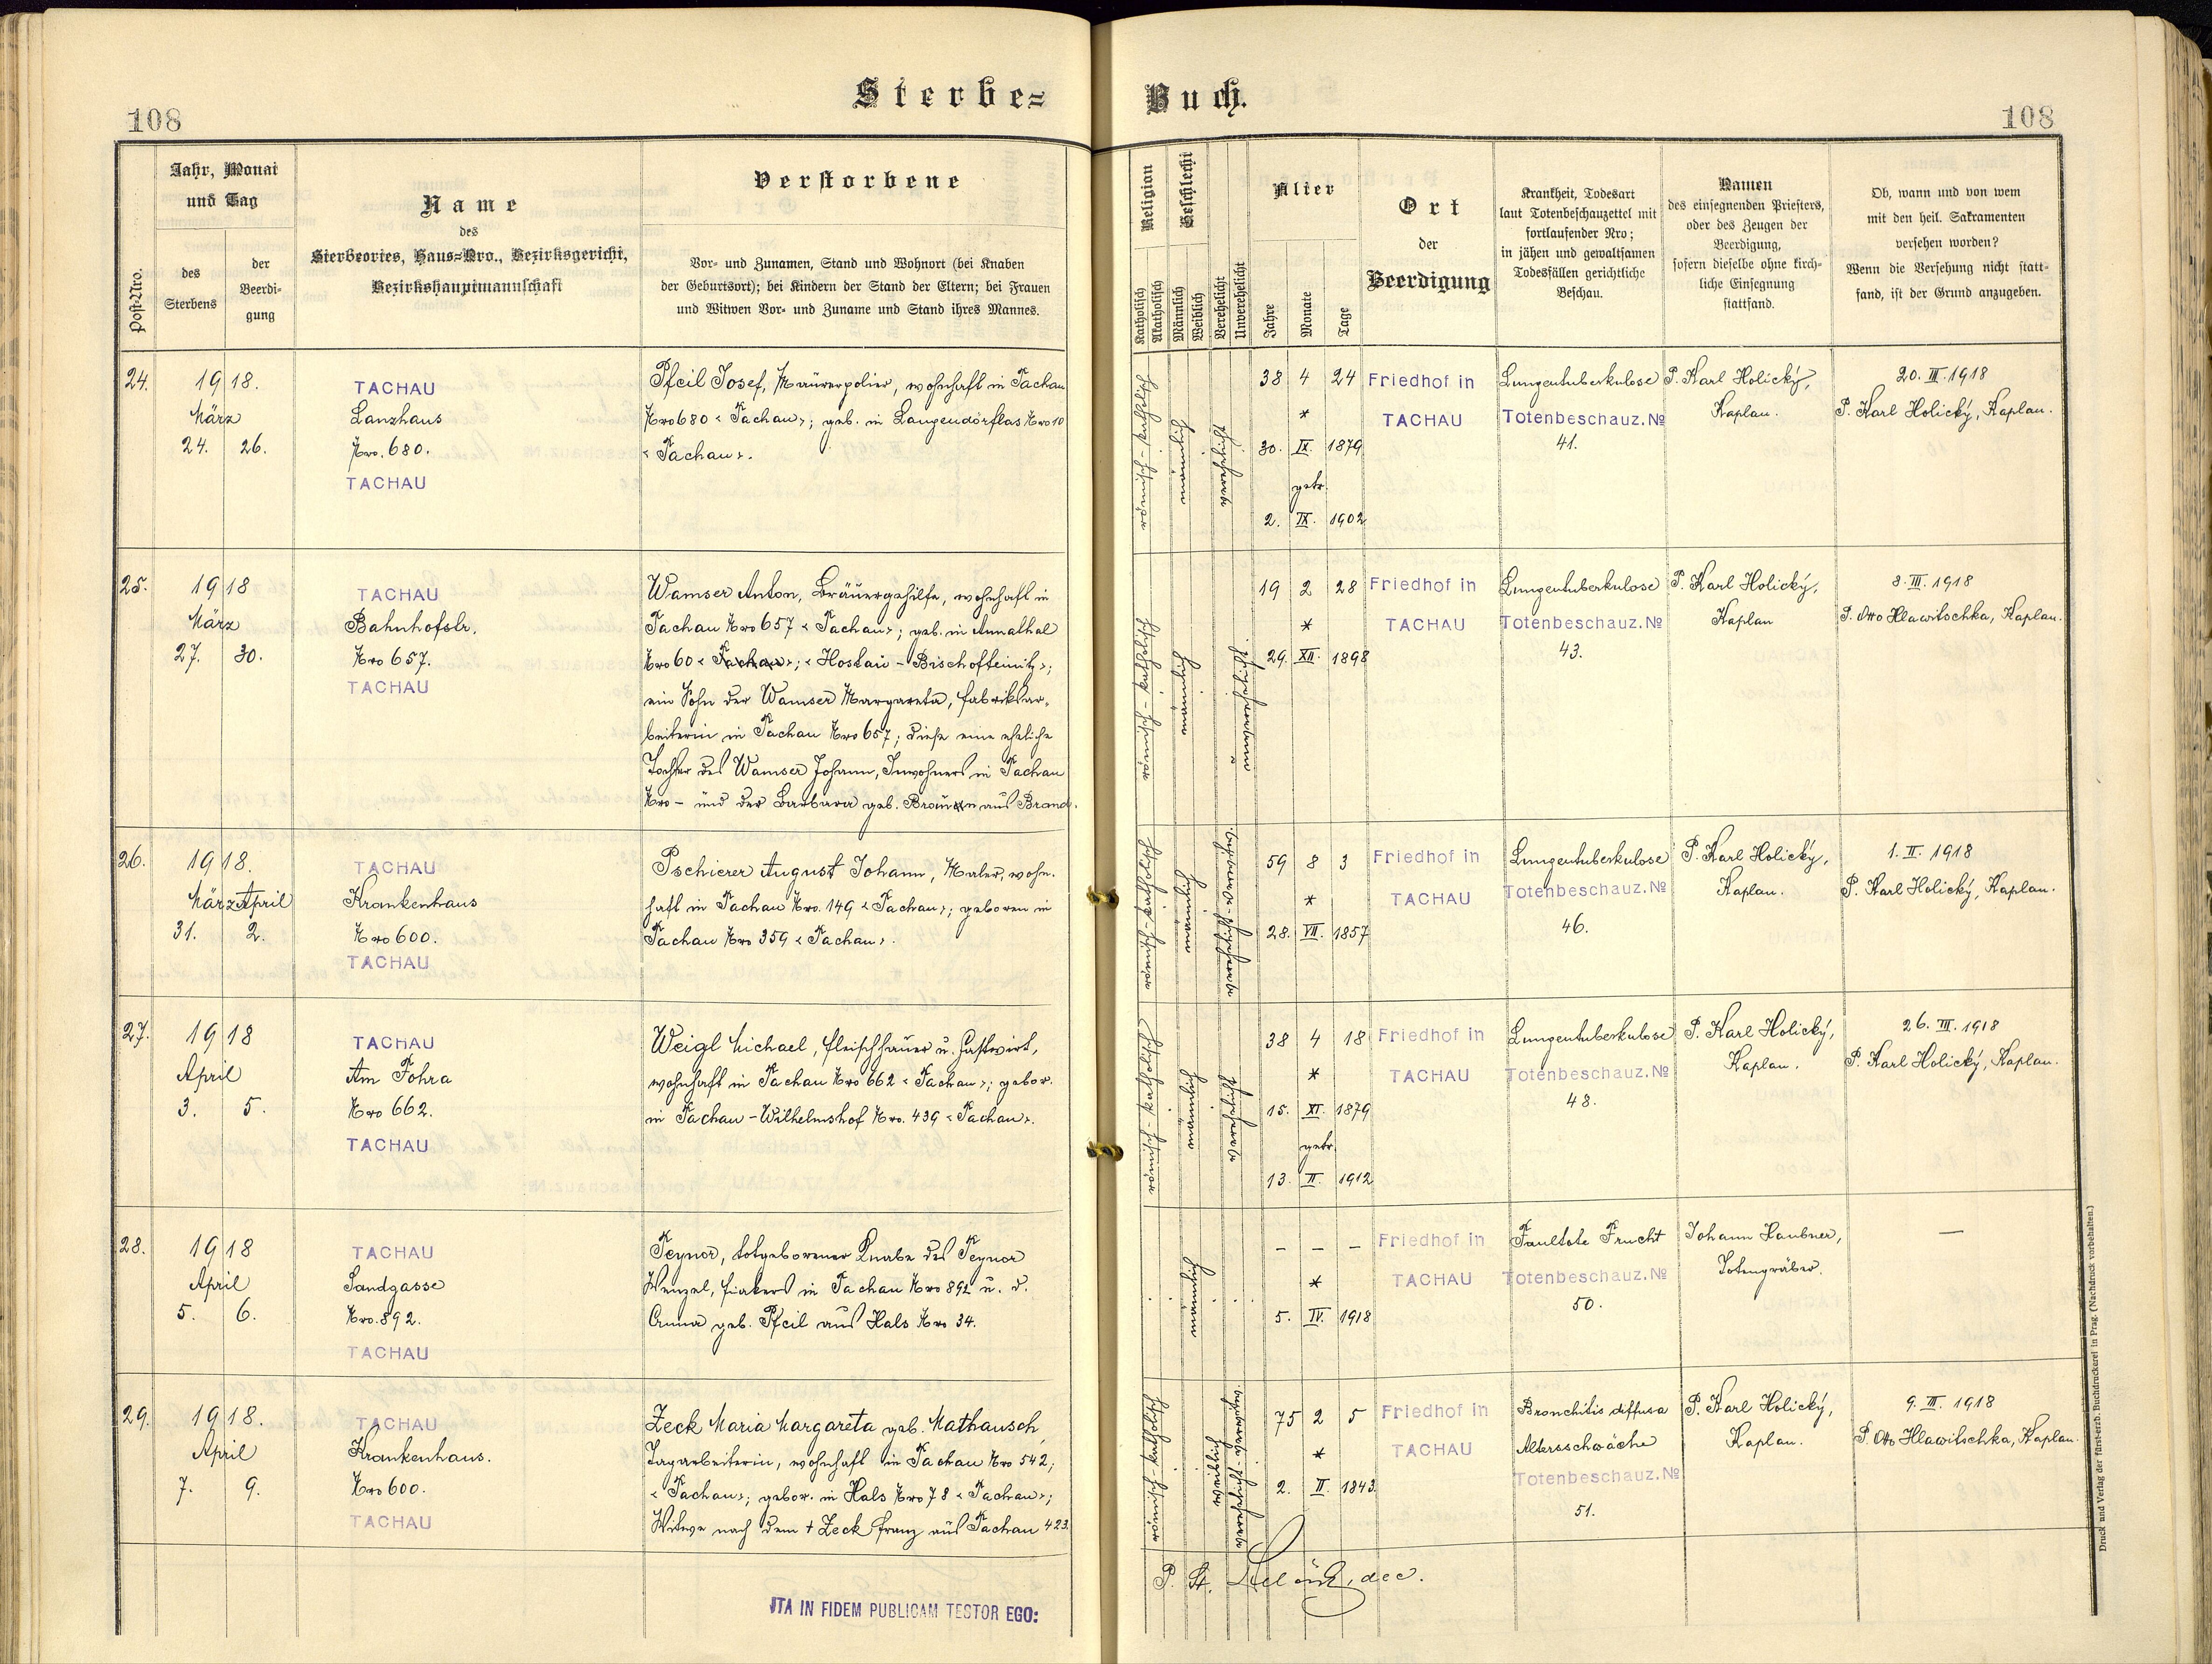 Sterbe=
Buch.
108
108
Post-Nro.
Jahr, Monat
und Tag
des
Sterbens
der
Beerdi-
gung
Name
des
Sterbeortes, Haus=Nro., Bezirksgericht,
Bezirkshauptmannschaft
Verstorbene
Vor- und Zunamen, Stand und Wohnort (bei Knaben
der Geburtsort); bei Kindern der Stand der Eltern; bei Frauen
und Witwen Vor- und Zuname und Stand ihres Mannes.
Religion
Katholisch
Akatholisch
Geschlecht
Männlich
Weiblich
Verehelicht
Unverehelicht
Alter
Jahre
Monate
Tage
Ort
der
Beerdigung
Krankheit, Todesart
laut Totenbeschauzettel mit
fortlaufender Nro;
in jähen und gewaltsamen
Todesfällen gerichtliche
Beschau.
Namen
des einsegnenden Priesters,
oder des Zeugen der
Beerdigung,
sofern dieselbe ohne kirch-
liche Einsegnung
stattfand.
Ob, wann und von wem
mit den heil. Sakramenten
versehen worden?
Wenn die Versehung nicht statt-
fand, ist der Grund anzugeben.
24.
1918.
März
24. 26.
TACHAU
Lanzhaus
Nro. 680.
TACHAU
Pfeil Josef, Maurerpolier, wohnhaft in Tachau
Nro 680 "Tachau"; geb. in Langendörflas Nro 10
"Tachau".
römisch-katholisch
männlich
verehelicht
38 4 24
*
30. IX. 1879
getr.
2. IX. 1902
Friedhof in
TACHAU
Lungentuberkulose
Totenbeschauz. No
41.
P. Karl Holický,
Kaplan.
20. III. 1918
P. Karl Holický, Kaplan.
25.
1918
März
27. 30.
TACHAU
Bahnhofstr.
Nro 657.
TACHAU
Wamser Anton, Bräuergehilfe, wohnhaft in
Tachau Nro 657 "Tachau"; geb. in Annathal
Nro 60 "Tachau"; "Hostau - Bischofteinitz";
ein Sohn der Wamser Margareta, Fabriksar-
beiterin in Tachau Nro 657; diese eine eheliche
Tochter des Wamser Johann, Inwohners in Tachau
Nro - und der Barbara geb. Braun aus Brand.
römisch-katholisch
männlich
unverehelicht
19 2 28
*
29. XII. 1898
Friedhof in
TACHAU
Lungentuberkulose
Totenbeschauz. No
43.
P. Karl Holický,
Kaplan
8. III. 1918
P. Otto Hlawitschka, Kaplan.
26.
1918.
März April
31. 2.
TACHAU
Krankenhaus
Nro 600.
TACHAU
Pschierer August Johann, Maler, wohn-
haft in Tachau Nro. 149 "Tachau"; geboren in
Tachau Nro 359 "Tachau".
römisch-katholisch
männlich
verehelicht
59 8 3
*
28. VII. 1857
Friedhof in
TACHAU
Lungentuberkulose
Totenbeschauz. No
46.
P. Karl Holický,
Kaplan.
1. II. 1918
P. Karl Holický, Kaplan.
27.
1918
April
3. 5.
TACHAU
Am Fohra
Nro 662.
TACHAU
Weigl Michael, Fleischhauer u. Gastwirt,
wohnhaft in Tachau Nro 662 "Tachau"; gebor.
in Tachau-Wilhelmshof Nro. 439 "Tachau".
römisch-katholisch
männlich
verehelicht
38 4 18
*
15. XI. 1879
getr.
13. II. 1912
Friedhof in
TACHAU
Lungentuberkulose
Totenbeschauz. No
48.
P. Karl Holický,
Kaplan.
26. III. 1918
P. Karl Holický, Kaplan.
28.
1918
April
5. 6.
TACHAU
Sandgasse
Nro. 892.
TACHAU
Teynor, totgeborener Knabe des Teynor
Wenzel, Fiakers in Tachau Nro 892 u. d.
Anna geb. Pfeil aus Hals Nro 34.
männlich
– – –
*
5. IV. 1918
Friedhof in
TACHAU
Faultote Frucht
Totenbeschauz. No
50.
Johann Haubner,
Totengräber.
—
29.
1918.
April
7. 9.
TACHAU
Krankenhaus.
Nro 600.
TACHAU
Zeck Maria Margareta geb. Mathausch,
Tagarbeiterin, wohnhaft in Tachau Nro 542,
"Tachau"; gebor. in Hals Nro 78 "Tachau";
Witwe nach dem † Zeck Franz aus Tachau 423.
römisch-katholisch
weiblich
verehelicht
75 2 5
*
2. II. 1843.
Friedhof in
TACHAU
Bronchitis diffusa
Altersschwäche
Totenbeschauz. No
51.
P. Karl Holický,
Kaplan.
9. III. 1918
P. Otto Hlawitschka, Kaplan.
ITA IN FIDEM PUBLICAM TESTOR EGO:
P. St. dec.
Druck und Verlag der fürst-erzb. Buchdruckerei in Prag. (Nachdruck vorbehalten.)